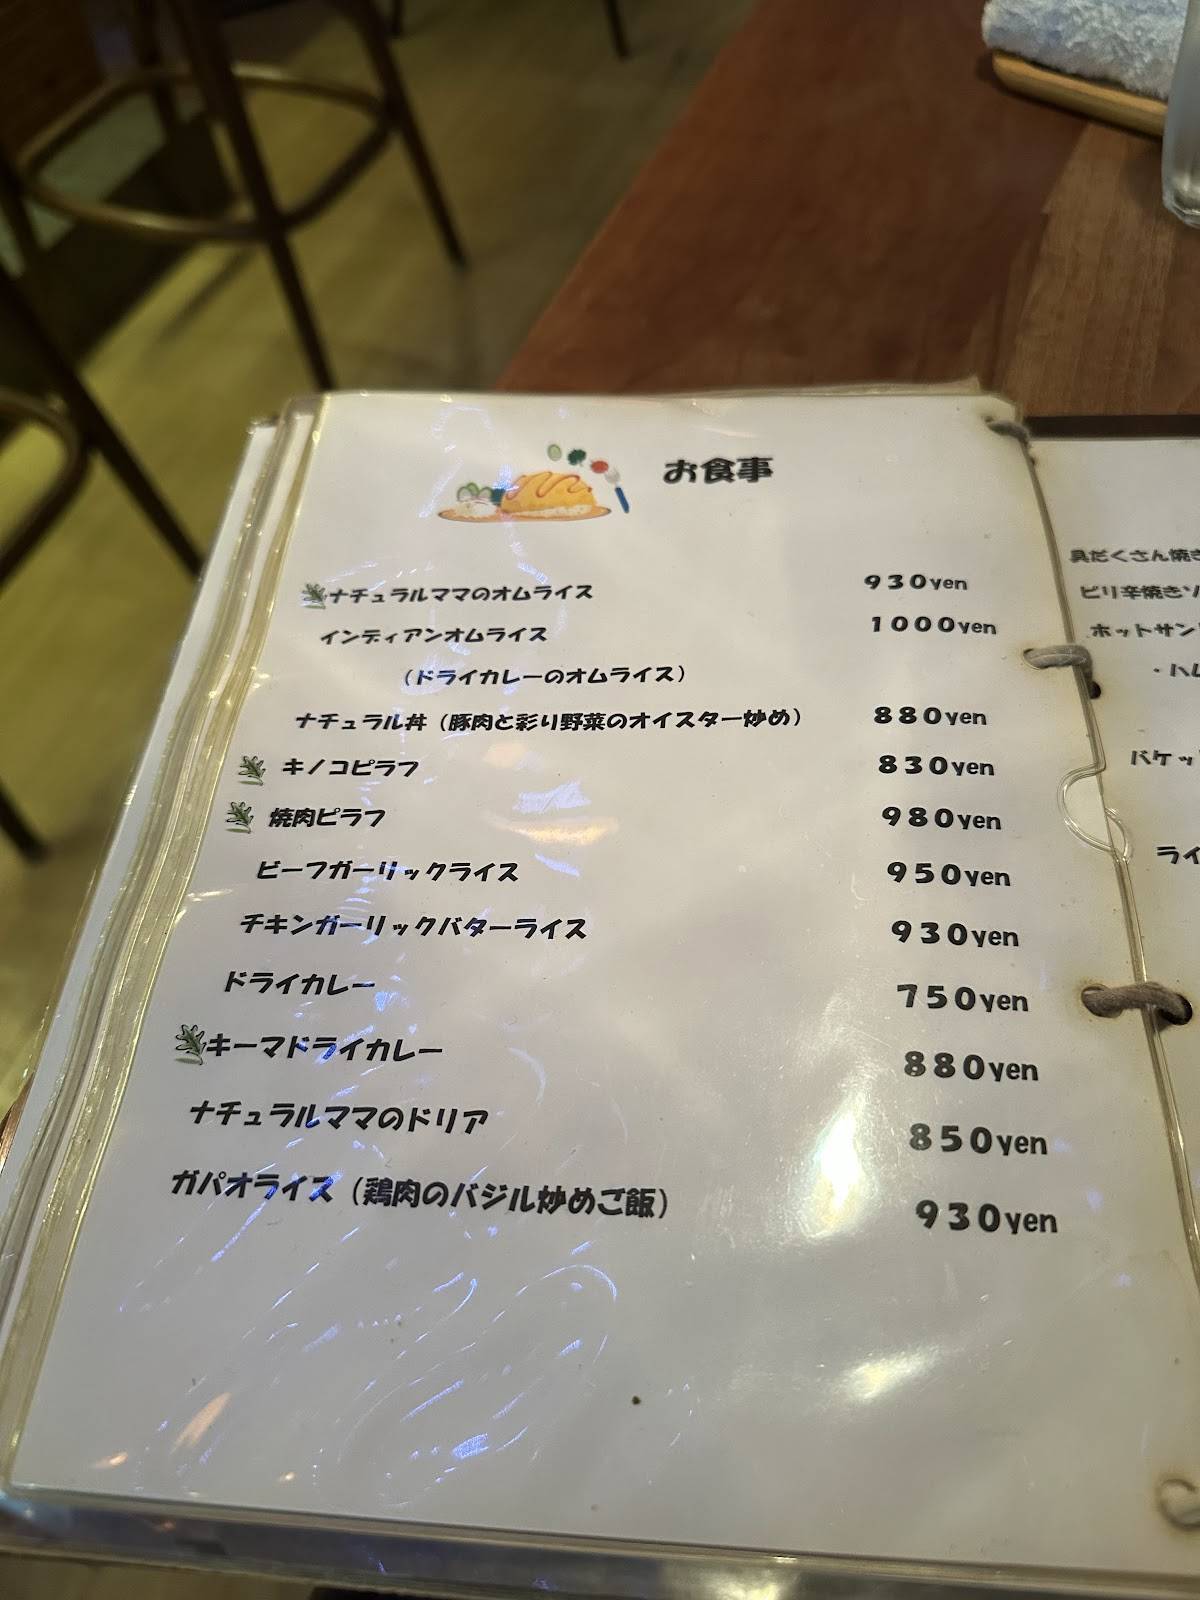 お食事
ナチュラルママのオムライス 930yen
インディアンオムライス 1000yen
（ドライカレーのオムライス）
ナチュラル丼（豚肉と彩り野菜のオイスター炒め） 880yen
キノコピラフ 830yen
焼肉ピラフ 980yen
ビーフガーリックライス 950yen
チキンガーリックバターライス 930yen
ドライカレー 750yen
キーマドライカレー 880yen
ナチュラルママのドリア 850yen
ガパオライス（鶏肉のバジル炒めご飯） 930yen
具だくさん焼き
ピリ辛焼きソ
ホットサン
・ハム
バケッ
ライ